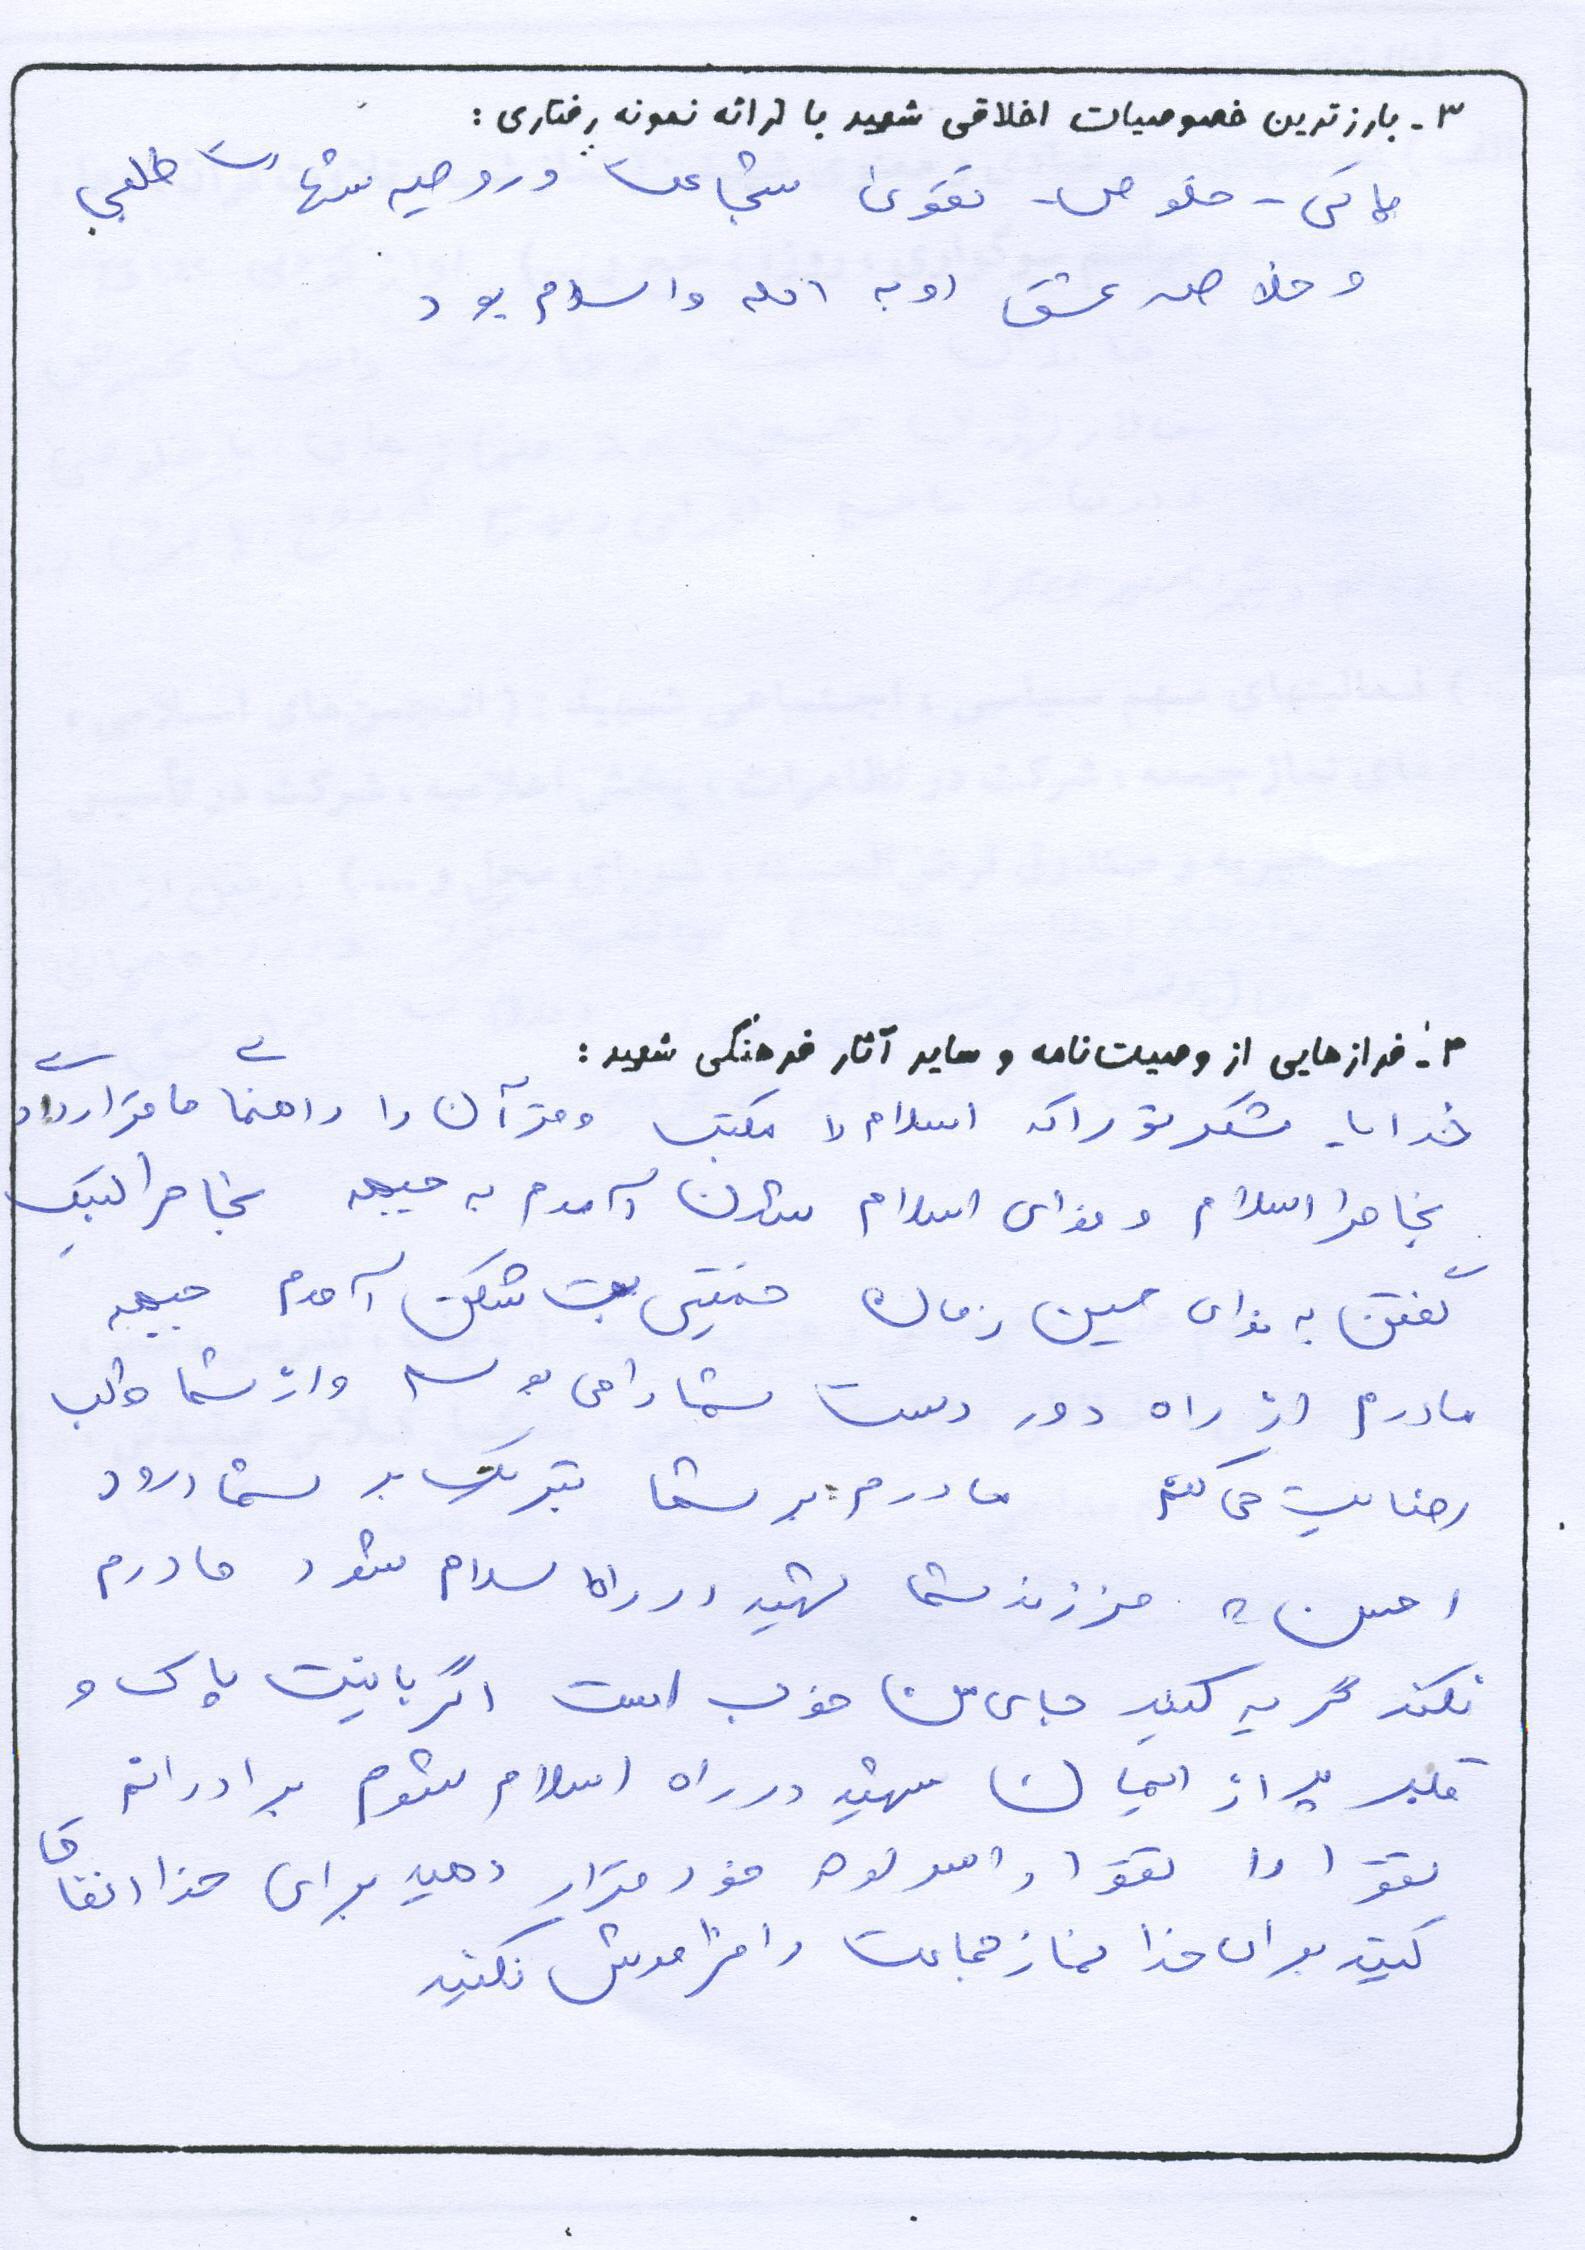 ۳- بارزترین خصوصیات اخلاقی شهید با ارائه نمونه رفتاری :
پاکی - خلوص - تقوی شجاعت و روحیه شهادت طلبی
و خلاصه عشق او به الله و اسلام بود
۴- فرازهایی از وصیت‌نامه و سایر آثار فرهنگی شهید :
خدایا شکر تو را که اسلام را مکتب و قرآن را راهنمای ما قرار دادی
بخاطر اسلام و فدای اسلام شدن آمدم به جبهه بخاطر لبیک
گفتن به ندای حسین زمان خمینی بت شکن آمدم جبهه
مادرم از راه دور دست شما را می بوسم و از شما طلب
رضایت می کنم مادرم بر شما تبریک بر شما درود
احسن فرزند شما شهید در راه اسلام شود مادرم
نکند گریه کنید جای من خوب است اگر با نیت پاک و
قلب پر از ایمان شهید در راه اسلام شوم برادرانم
تقوا را تقوا را اسلوه خود قرار دهید برای خدا انفاق
کنید برای خدا نماز جماعت را فراموش نکنید